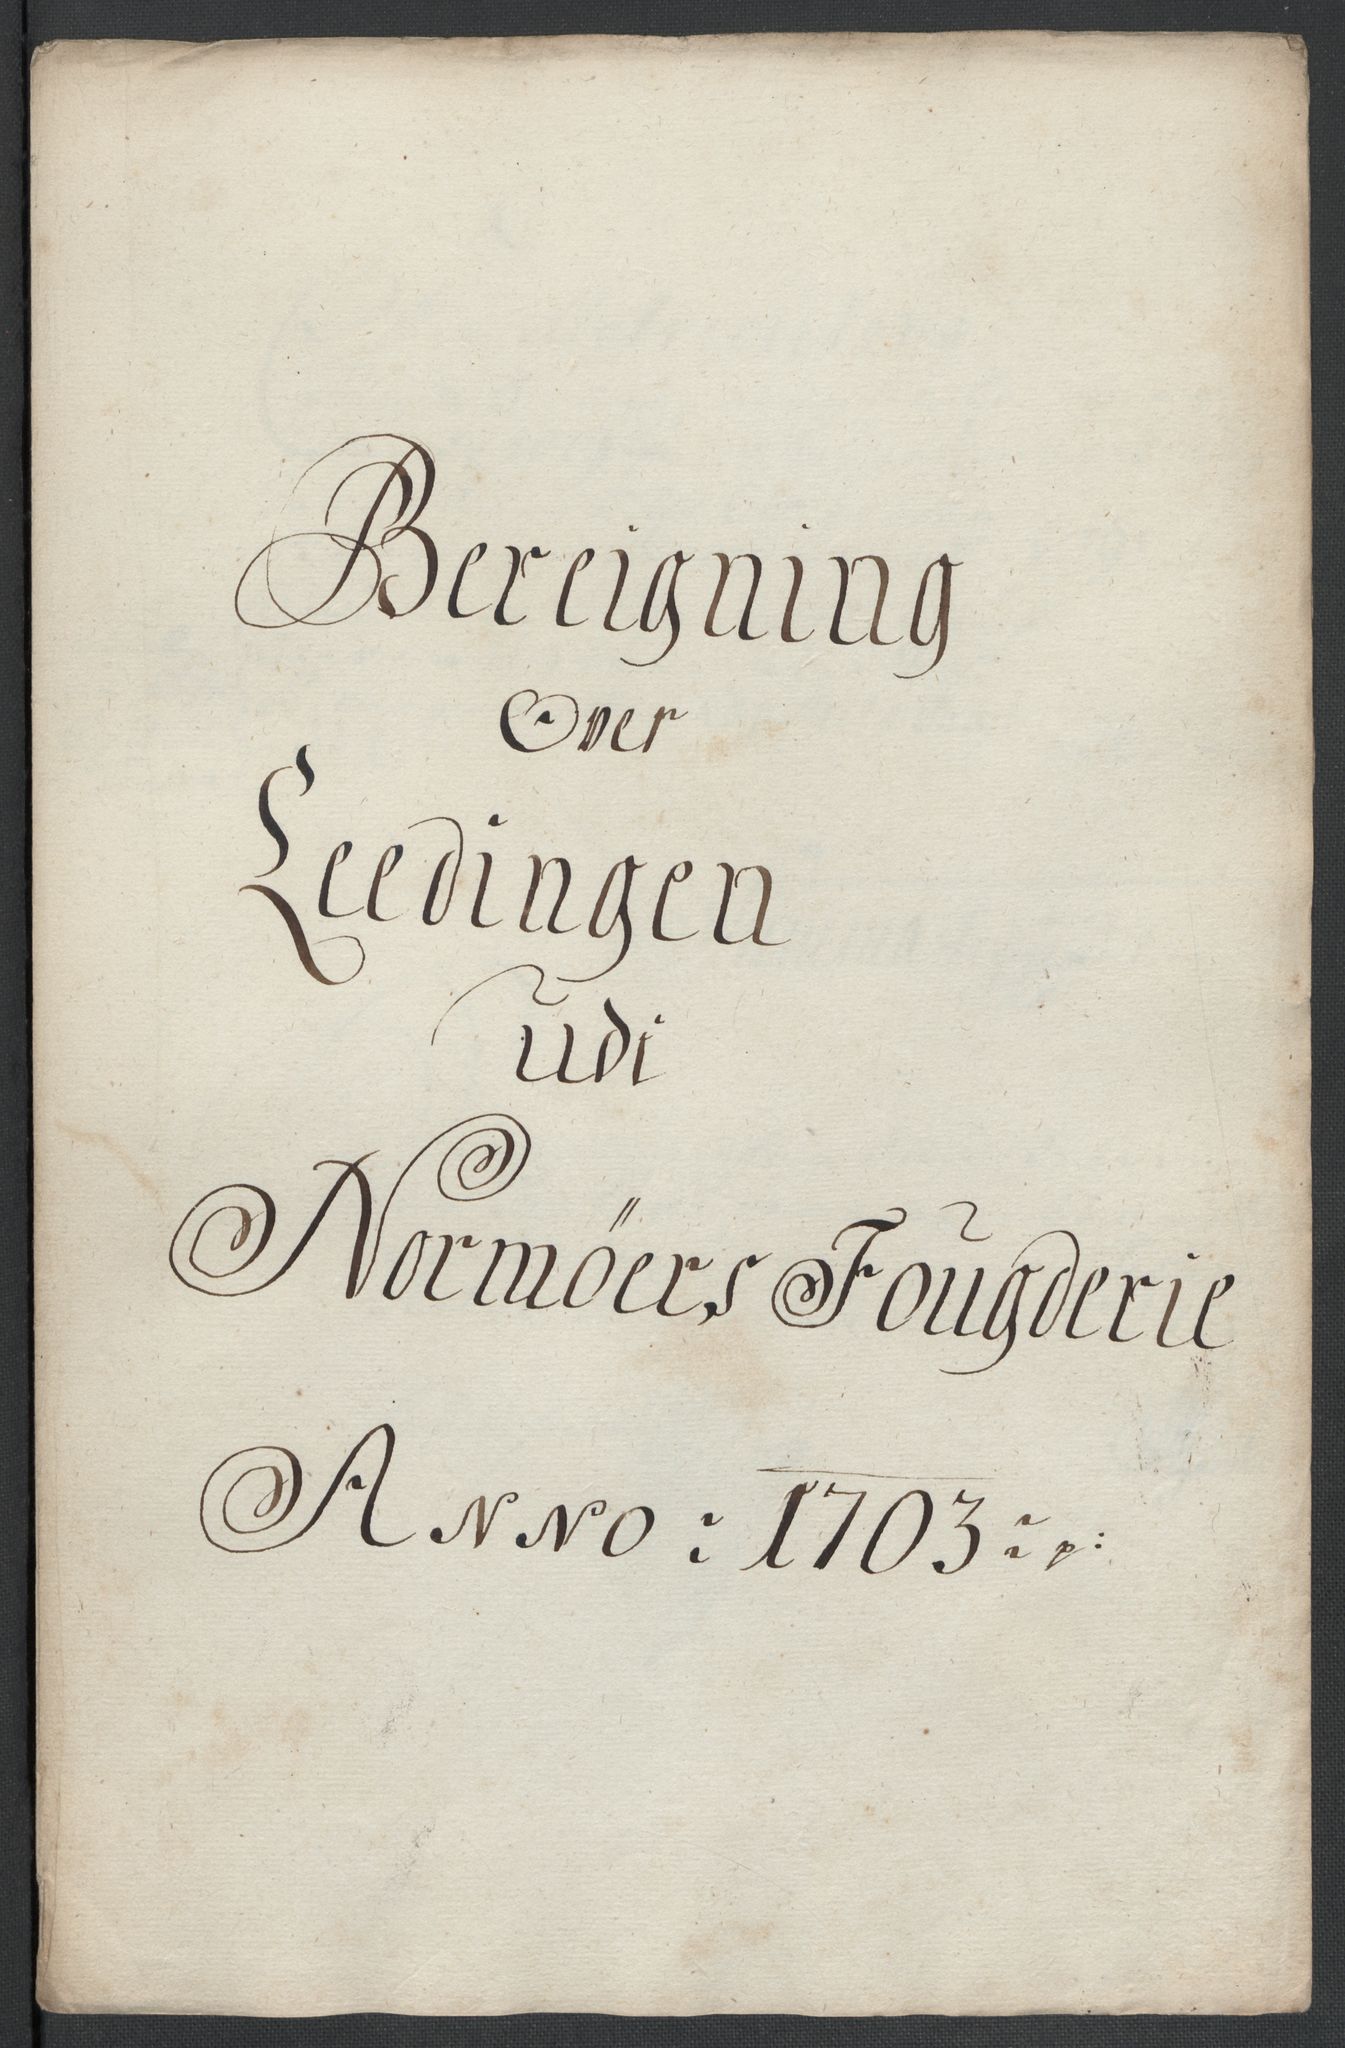 Bereigning
Over
Leedingen
udi
Normöers Fougderie
Anno : 1703 : p: